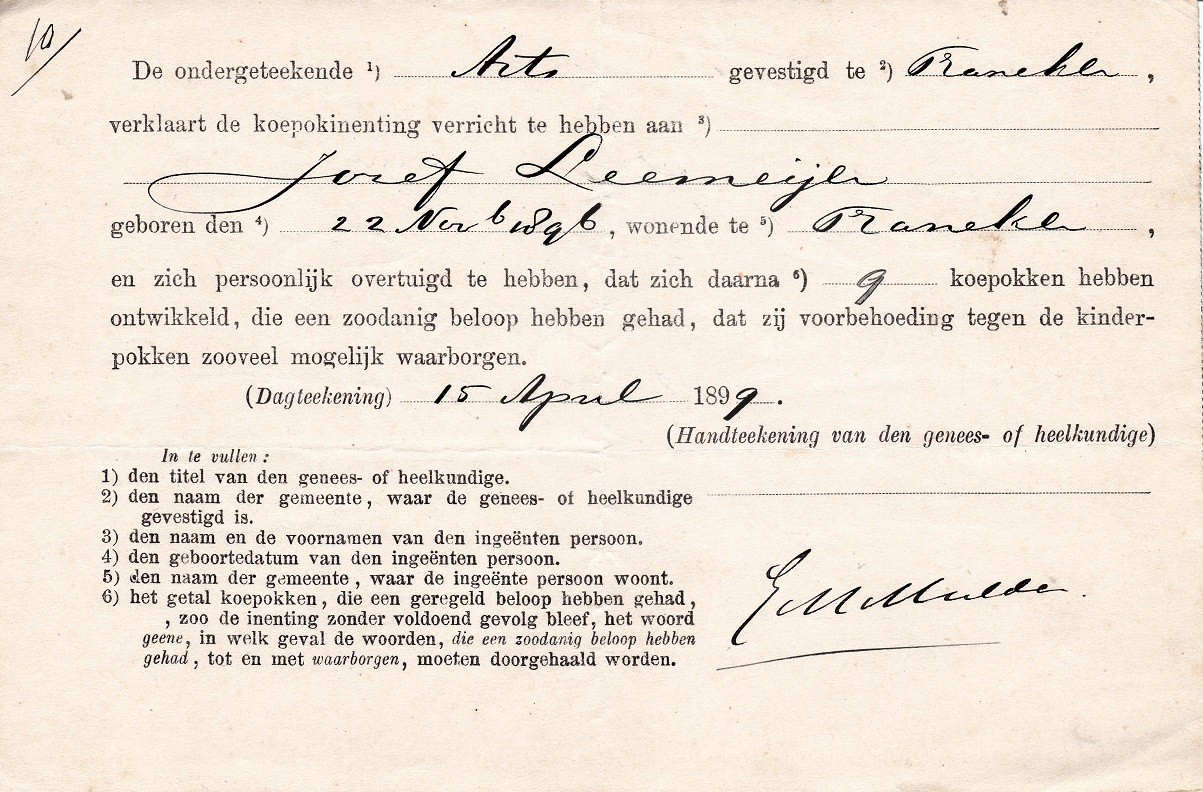 10/
De ondergeteekende ¹) Arts gevestigd te ²) Franeker,
verklaart de koepokinenting verricht te hebben aan ³)
Josef Leemeijer
geboren den ⁴) 22 Novb 1896, wonende te ⁵) Franeker,
en zich persoonlijk overtuigd te hebben, dat zich daarna ⁶) 9 koepokken hebben
ontwikkeld, die een zoodanig beloop hebben gehad, dat zij voorbehoeding tegen de kinder-
pokken zooveel mogelijk waarborgen.
(Dagteekening) 15 April 1899.
(Handteekening van den genees- of heelkundige)
In te vullen:
1) den titel van den genees- of heelkundige.
2) den naam der gemeente, waar de genees- of heelkundige
gevestigd is.
3) den naam en de voornamen van den ingeënten persoon.
4) den geboortedatum van den ingeënten persoon.
5) den naam der gemeente, waar de ingeënte persoon woont.
6) het getal koepokken, die een geregeld beloop hebben gehad,
, zoo de inenting zonder voldoend gevolg bleef, het woord
geene, in welk geval de woorden, die een zoodanig beloop hebben
gehad, tot en met waarborgen, moeten doorgehaald worden.
Mulder